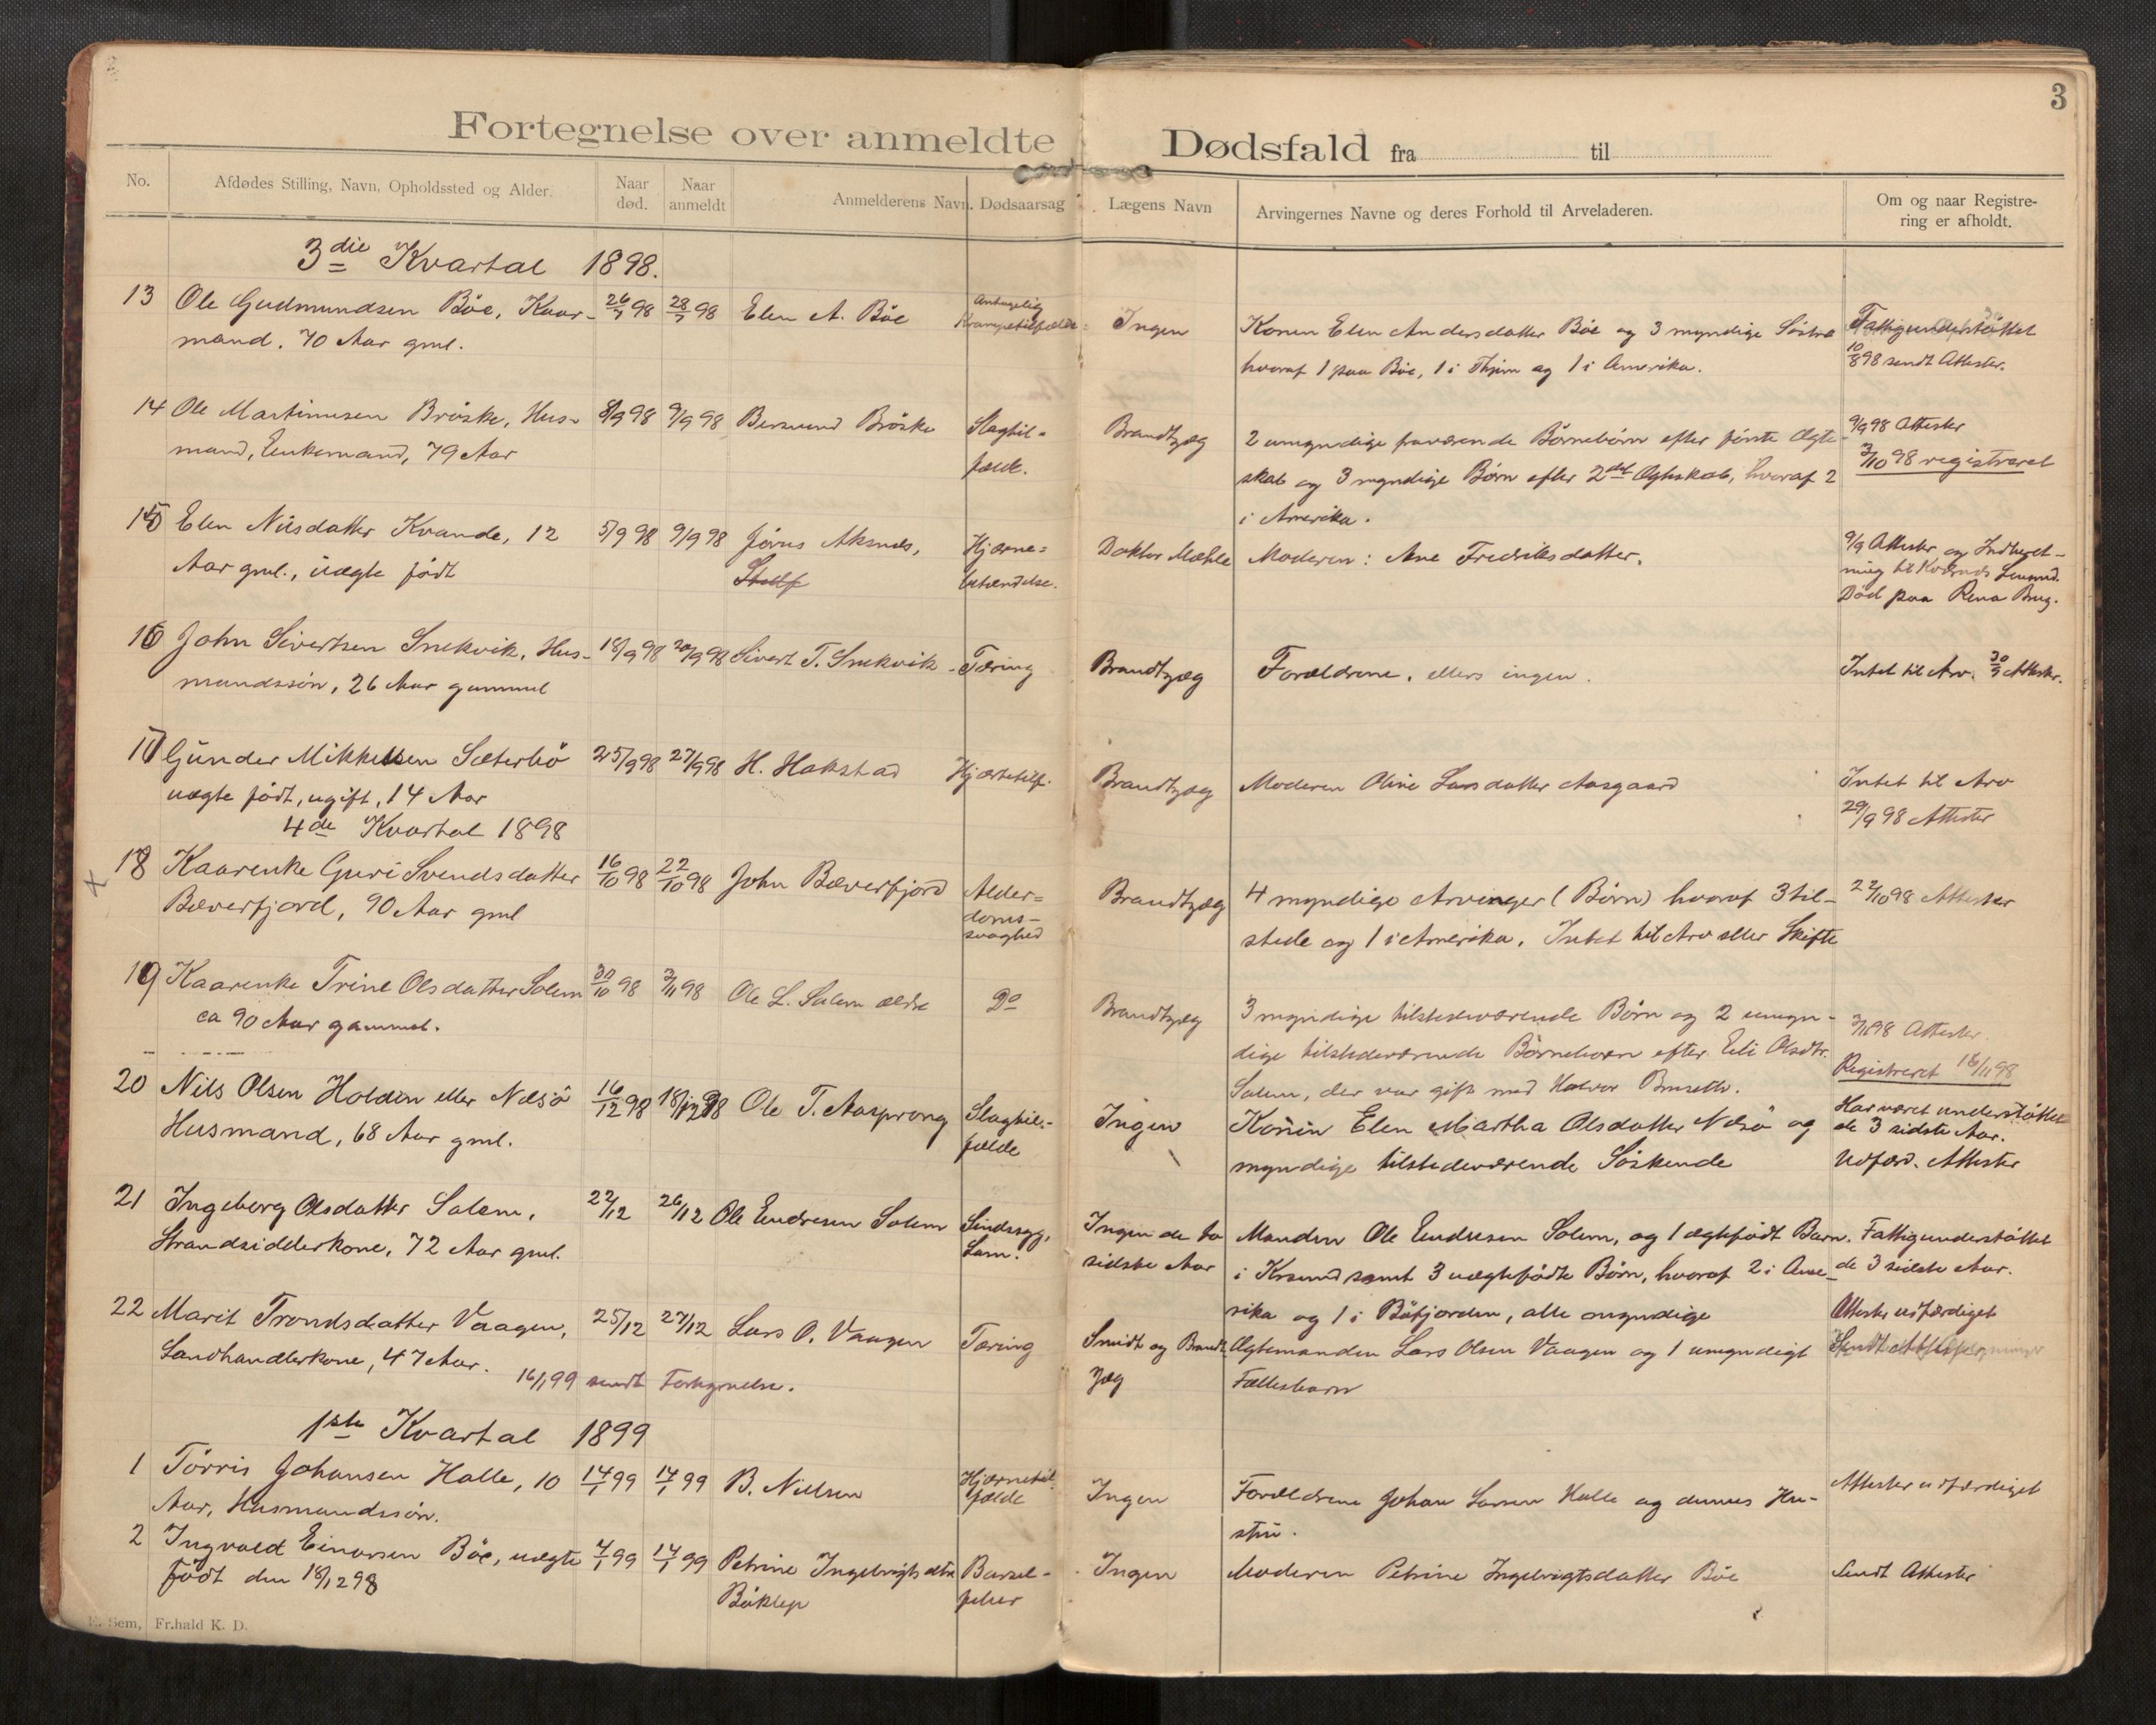 3
Fortegnelse over anmeldte Dødsfald fra til
No. Afdødes Stilling, Navn, Opholdssted og Alder. Naar død. Naar anmeldt Anmelderens Navn. Dødsaarsag Lægens Navn Arvingernes Navne og deres Forhold til Arveladeren. Om og naar Registrering er afholdt.
3die Kvartal 1898.
13 Ole Gudmundsen Böe, Kaar- 26/7 98 28/7 98 Elen A. Böe Antagelig Krampetilfælde Ingen Konen Elen Andersdatter Böe og 3 myndige Söstre Fattigunderstöttet
mand. 70 Aar gml. hvoraf 1 paa Böe, 1 i Thjem og 1 i Amerika. 10/8 98 sendt Attester.
14 Ole Martinusen Bröske, Hus- 8/9 98 9/9 98 Bersvend Bröske Slagtil- Brandtzæg 2 umyndige fraværende Börnebörn efter förste Ægte- 9/9 98 Attester
mand, Enkemand, 79 Aar fælde. skab og 3 myndige Börn efter 2det Ægteskab, hvoraf 2 3/10 98 registreret
i Amerika.
15 Elen Nilsdatter Kvande, 12 5/9 98 9/9 98 Jörus Aksnes, Hjærne- Doktor Mæhle Moderen: Ane Fredriksdatter. 9/9 Attester og Indberet-
Aar gml., uægte födt betændelse. ning til Kværnes Lensmd.
Död paa Rena Brug.
16 John Sivertsen Snekvik, Hus- 18/9 98 20/9 98 Sivert T. Snekvik Tæring Brandtzæg Forældrene, ellers ingen. Intet til Arv. 30/9 Attester.
mandssön, 26 Aar gammel
17 Gunder Mikkelsen Sæterbö 25/9 98 27/9 98 H. Hakstad Hjærtetilf. Brandtzæg Moderen Oline Larsdatter Aasgaard Intet til Arv
uægte födt, ugift, 14 Aar 29/9 98 Attester
4de Kvartal 1898
x 18 Kaarenke Guri Svendsdatter 16/10 98 22/10 98 John Bæverfjord Alder- Brandtzæg 4 myndige Arvinger (Börn) hvoraf 3 til- 22/10 98 Attester
Bæverfjord, 90 Aar gml doms- stede og 1 i Amerika. Intet til Arv eller Skifte
svaghed
19 Kaarenke Trine Olsdatter Solem 30/10 98 3/11 98 Ole L. Solem ældre Do Brandtzæg 3 myndige tilstedeværende Börn og 2 umyn- 3/11 98 Attester.
ca 90 Aar gammel. dige tilstedeværende Börnebørn efter Eli Olsdtr. Registreret 16/11 98
Solem, der var gift med Halvor Bruseth.
20 Nils Olsen Holden eller Næsö 16/12 98 18/12 98 Ole T. Aasprong Slagtil- Ingen Konen Elen Martha Olsdatter Næsö og Har været understöttet
Husmand, 68 Aar gml. fælde myndige tilstedeværende Söskende de 3 sidste Aar.
Udfærd. Attester
21 Ingeborg Olsdatter Solem, 22/12 26/12 Ole Endresen Solem Sindssyg, Ingen de to Manden Ole Endresen Solem, og 1 ægtefödt Barn Fattigunderstöttet
Strandsidderkone, 72 Aar gml. Lam. sidste Aar i Krsund samt 3 uægtefödte Börn, hvoraf 2 i Ame- de 3 sidste Aar.
rika og 1 i Böfjorden, alle myndige Attester udfærdiget
22 Marit Trondsdatter Vaagen, 25/12 27/12 Lars O. Vaagen Tæring Smidt og Brandt- Ægtemanden Lars Olsen Vaagen og 1 umyndigt Sendt Attester
Landhandlerkone, 47 Aar. zæg Fællesbarn
16/1 99 sendt Fortegnelse.
1ste Kvartal 1899
1 Törris Johansen Halle, 10 14/1 99 14/1 99 B. Nielsen Hjærnetil- Ingen Forældrene Johan Larsen Halle og dennes Hu- Attester udfærdiget
Aar, Husmandssön. fælde stru.
2 Ingvald Einarsen Böe, uægte 4/1 99 14/1 99 Petrine Ingebrigtsdtr Barsel- Ingen Moderen Petrine Ingebrigtsdatter Böe Sendt Attester
födt den 18/12 98 Böklep feber
Sem, Fr.hald K. D.